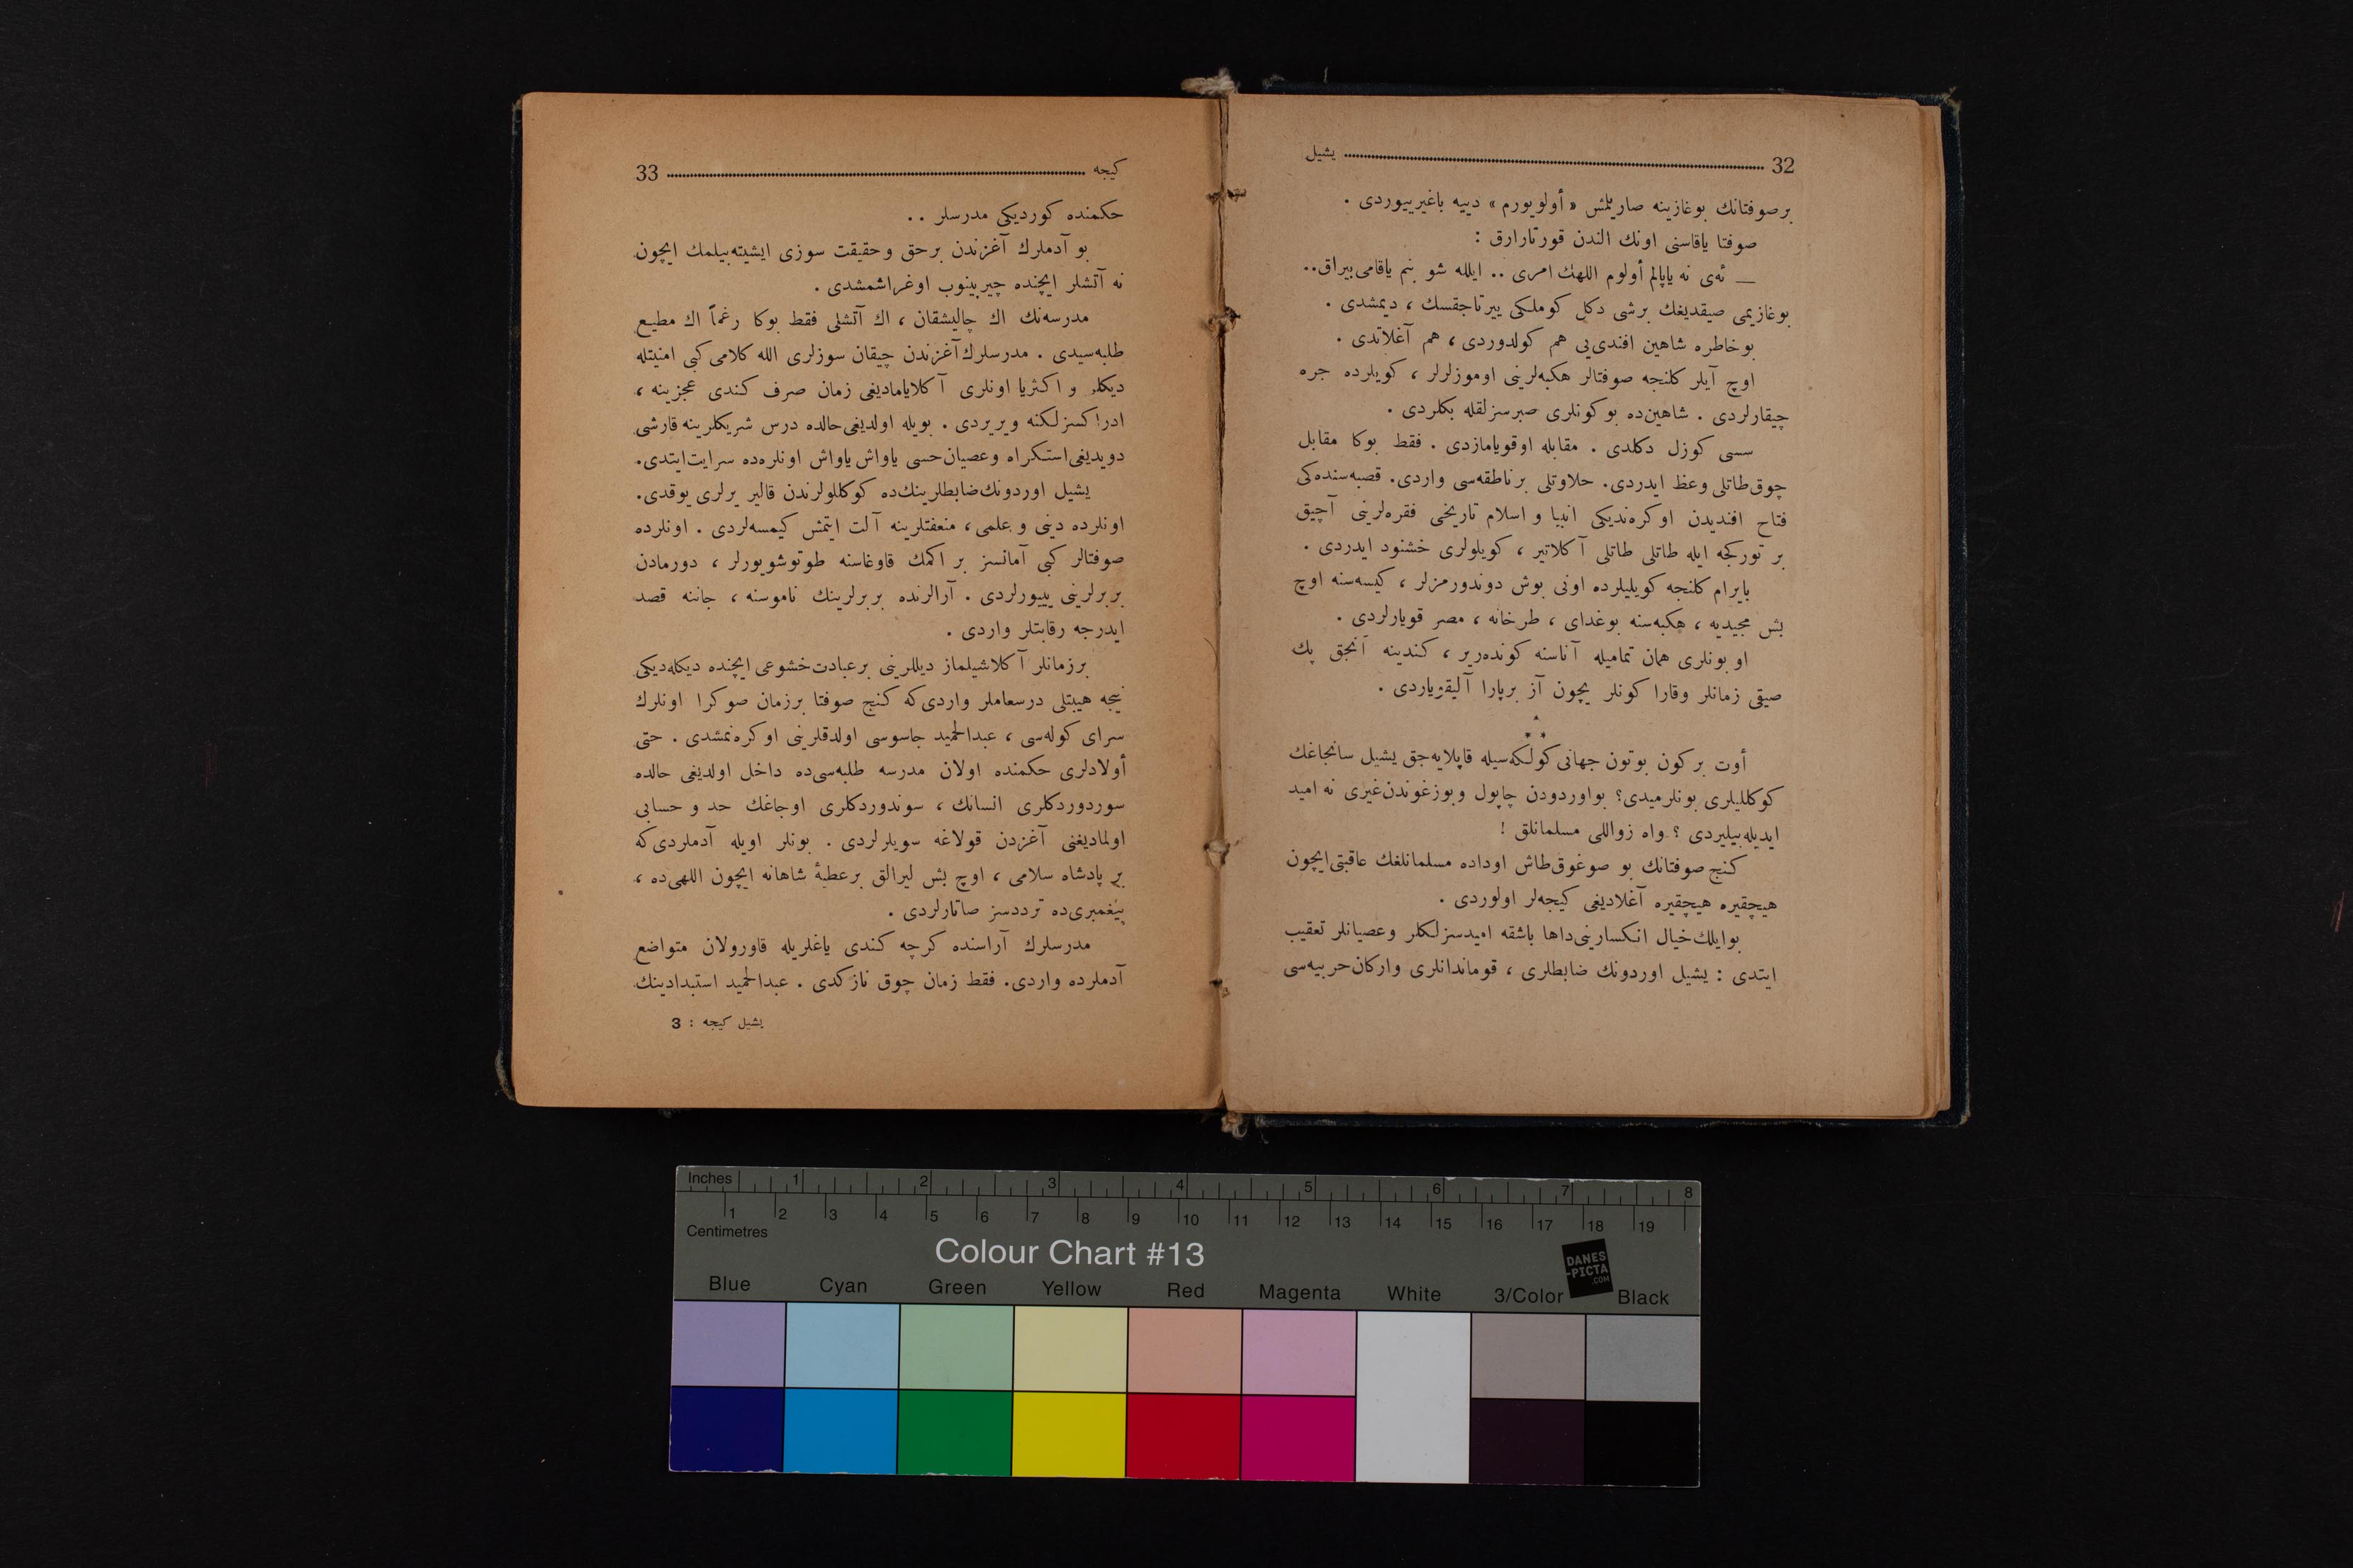 32 یشیل
برصوفتانك بوغازینه صاریلمش «أولویورم» دییه باغیرییوردی .
صوفتا یاقاسنی اونك الندن قورتارارق :
— ئه‌ی نه یاپالم أولوم اللهك امری .. ایلله شو بنم یاقامی بیراق..
بوغازیمی صیقدیغك برشی دكل كوملكی ییرتاجقسك ، دیمشدی .
بوخاطره شاهین افندی‌یی هم كولدوردی ، هم آغلاتدی .
اوچ آیلر كلنجه صوفتالر هكبه‌لرینی اوموزلرلر ، كویلرده جره
چیقارلردی . شاهین‌ده بو كونلری صبرسزلقله بكلردی .
سسی كوزل دكلدی . مقابله اوقویامازدی . فقط بوكا مقابل
چوق طاتلی وعظ ایدردی. حلاوتلی برناطقه‌سی واردی. قصبه‌سنده‌كی
فتاح افندیدن اوكره‌ندیكی انبیا و اسلام تاریخی فقره‌لرینی آچیق
بر توركجه ایله طاتلی طاتلی آكلاتیر ، كویلولری خشنود ایدردی .
بایرام كلنجه كویلیلرده اونی بوش دوندورمزلر ، كیسه‌سنه اوچ
بش مجیدیه ، هكبه‌سنه بوغدای ، طرخانه ، مصر قویارلردی .
او بونلری همان تمامیله آناسنه كونده‌ریر ، كندینه آنجق پك
صیقی زمانلر وقارا كونلر ایچون آز برپارا آلیقویاردی .
* * *
أوت بركون بوتون جهانی كولكه‌سیله قاپلایه‌جق یشیل سانجاغك
كوكللیلری بونلرمیدی؟ بواوردودن چاپول وبوزغوندن غیری نه امید
ایدیله‌بیلیردی ؟ واه زواللی مسلمانلق !
كنج صوفتانك بو صوغوق طاش اوداده مسلمانلغك عاقبتی ایچون
هیچقیره هیچقیره آغلادیغی كیجه‌لر اولوردی .
بوایلك خیال انكسارینی داها باشقه امیدسزلكلر وعصیانلر تعقیب
ایتدی : یشیل اوردونك ضابطلری ، قوماندانلری واركان حربیه‌سی
كیجه 33
حكمنده كوردیكی مدرسلر ..
بو آدملرك آغزندن برحق وحقیقت سوزی ایشیته‌بیلمك ایچون
نه آتشلر ایچنده چیرپینوب اوغراشمشدی .
مدرسه‌نك اك چالیشقان ، اك آتشلی فقط بوكا رغماً اك مطیع
طلبه‌سیدی . مدرسلرك آغزندن چیقان سوزلری الله كلامی كبی امنیتله
دیكلر و اكثریا اونلری آكلایامادیغی زمان صرف كندی عجزینه ،
ادراكسزلكنه ویریردی . بویله اولدیغی حالده درس شریكلرینه قارشی
دویدیغی استكراه وعصیان حسی یاواش یاواش اونلره‌ده سرایت ایتدی.
یشیل اوردونك ضابطلرینك‌ده كوكللولرندن قالیر یرلری یوقدی.
اونلرده دینی و علمی ، منعفتلرینه آلت ایتمش كیمسه‌لردی . اونلرده
صوفتالر كبی آمانسز بر اكمك قاوغاسنه طوتوشویورلر ، دورمادن
بربرلرینی ییبورلردی . آرالرنده بربرلرینك ناموسنه ، جاننه قصد
ایدرجه رقابتلر واردی .
برزمانلر آكلاشیلماز دیللرینی برعبادت خشوعی ایچنده دیكله‌دیكی
نیجه هیبتلی درسعاملر واردی‌كه كنج صوفتا برزمان صوكرا اونلرك
سرای كوله‌سی ، عبدالحمید جاسوسی اولدقلرینی اوكره‌نمشدی . حتی
أولادلری حكمنده اولان مدرسه طلبه‌سی‌ده داخل اولدیغی حالده
سوردوردكلری انسانك ، سوندوردكلری اوجاغك حد و حسابی
اولمادیغنی آغزدن قولاغه سویلرلردی . بونلر اویله آدملردی‌كه
بر پادشاه سلامی ، اوچ بش لیرالق برعطیهٔ شاهانه ایچون اللهی‌ده ،
پیغمبری‌ده ترددسز صاتارلردی .
مدرسلرك آراسنده كرچه كندی یاغلریله قاورولان متواضع
آدملرده واردی. فقط زمان چوق نازكدی . عبدالحمید استبدادینك
یشیل كیجه : 3
Inches 1 2 3 4 5 6 7 8
1 2 3 4 5 6 7 8 9 10 11 12 13 14 15 16 17 18 19
Centimetres
Colour Chart #13
DANES
-PICTA
.COM
Blue Cyan Green Yellow Red Magenta White 3/Color Black